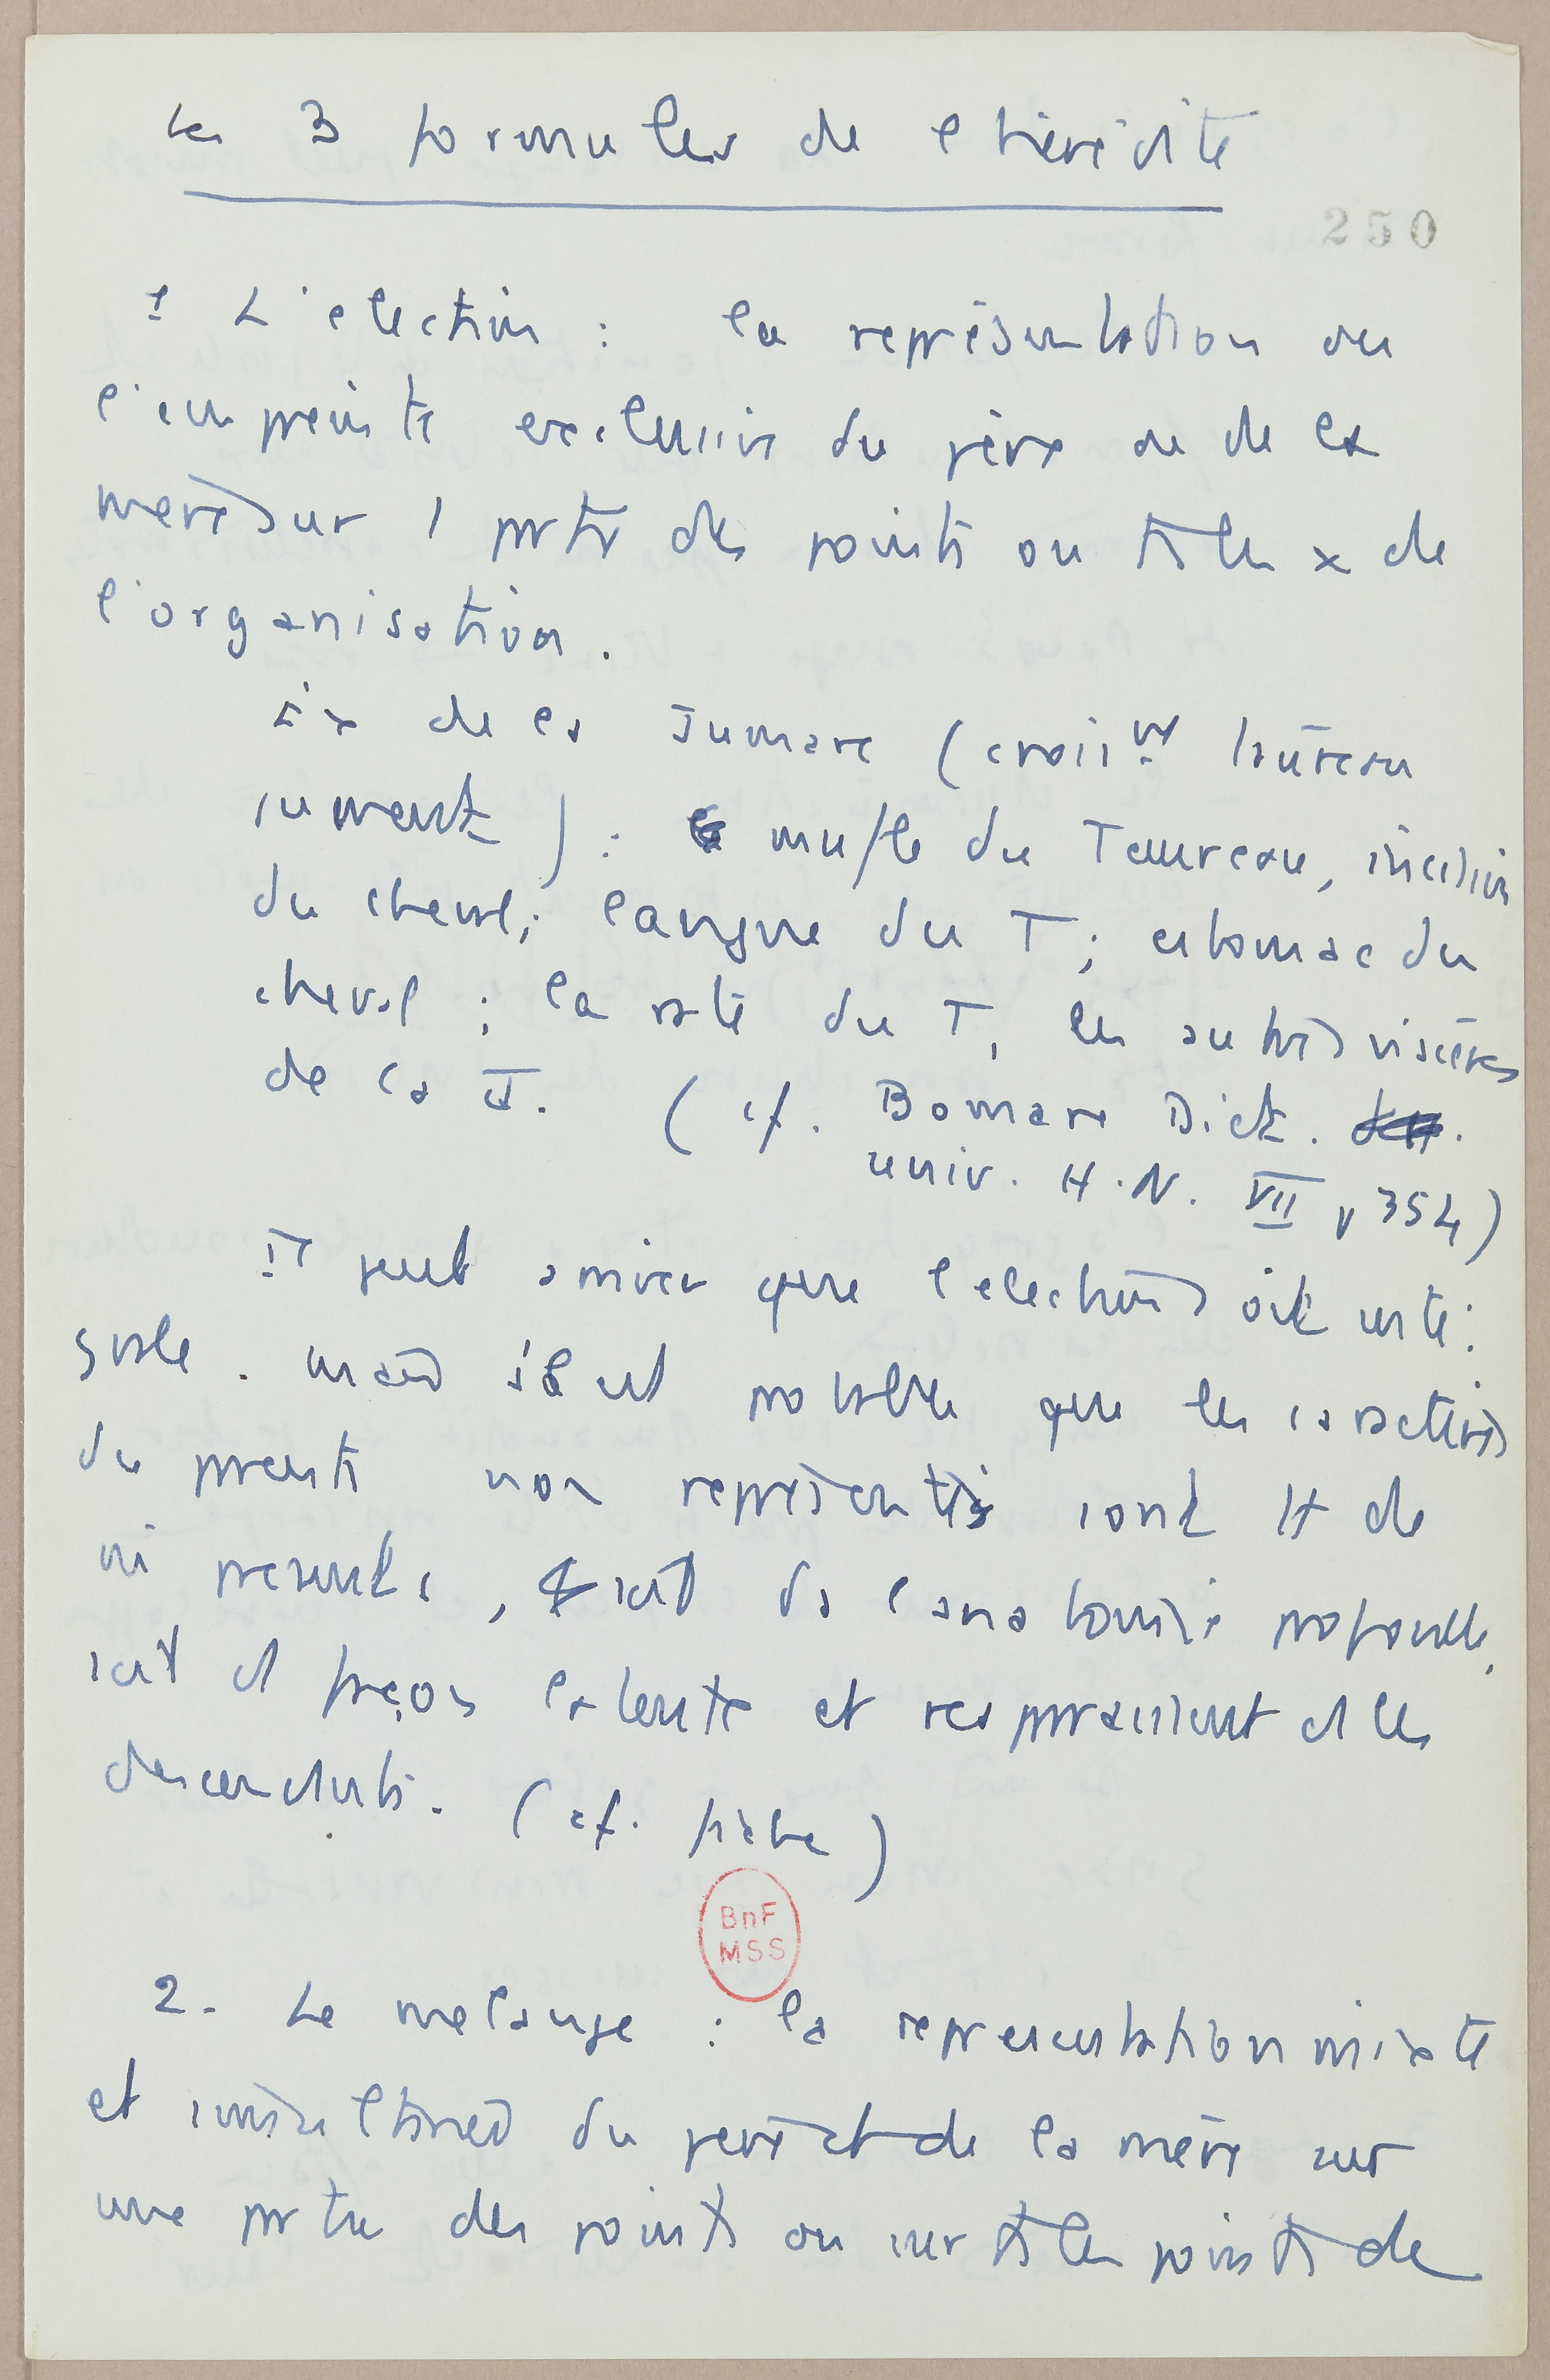 Les 3 formules de l'hérédité
250
1 L'election : la représentation ou
l'empreinte exclusive du père ou de la
mere sur 1 prtie des points ou ts les x de
l'organisation.
Ex de la Jumare (croist taureau
jument) : mufle du Taureau, incisives
du cheval; langue du T; estomac du
cheval; la rate du T, les autres viscères
de la J. (cf. Bomare Dict.
univ. H.N. VII p 354)
Il peut arriver que l'election soit inté-
grale. mais il est possible que les caractères
du parent non représentés sont de
ni presents, soit ds l'anatomie profonde,
soit d façon latente et reapparaissent ds les
descendants. (cf. fiche)
BnF
MSS
2. Le melange : la representation mixte
et simultanée du pere et de la mère sur
une prtie des points ou sur ts les points de